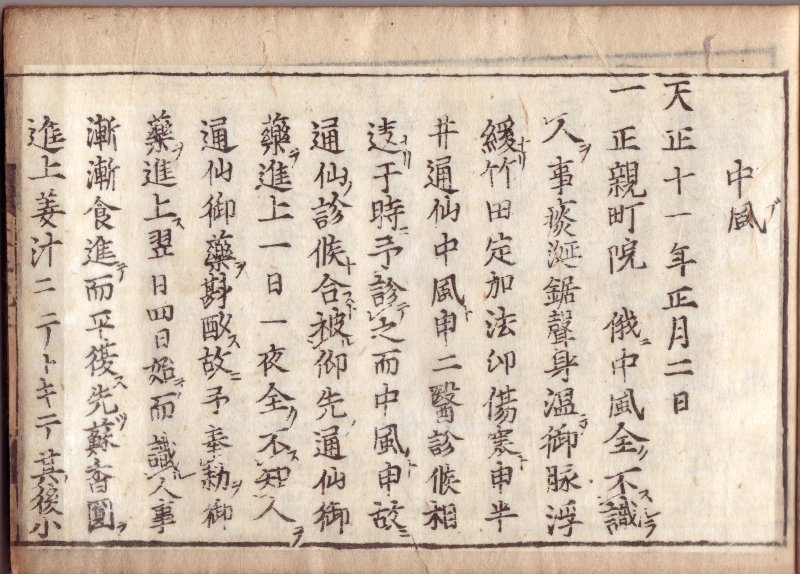 中風
天正十一年正月二日
一正親町院　俄中風全不識
人事痰涎鋸聲身温御脉浮
緩竹田定加法印傷寒申半
井通仙中風申二醫診候相
違于時予診之而中風申故
通仙診候合被仰先通仙御
藥進上一日一夜全不知人
通仙御藥斟酌故予奉勅御
藥進上翌日四日始而識人事
漸漸食進而平復先蘇香圓
進上姜汁ニテトキテ其後小